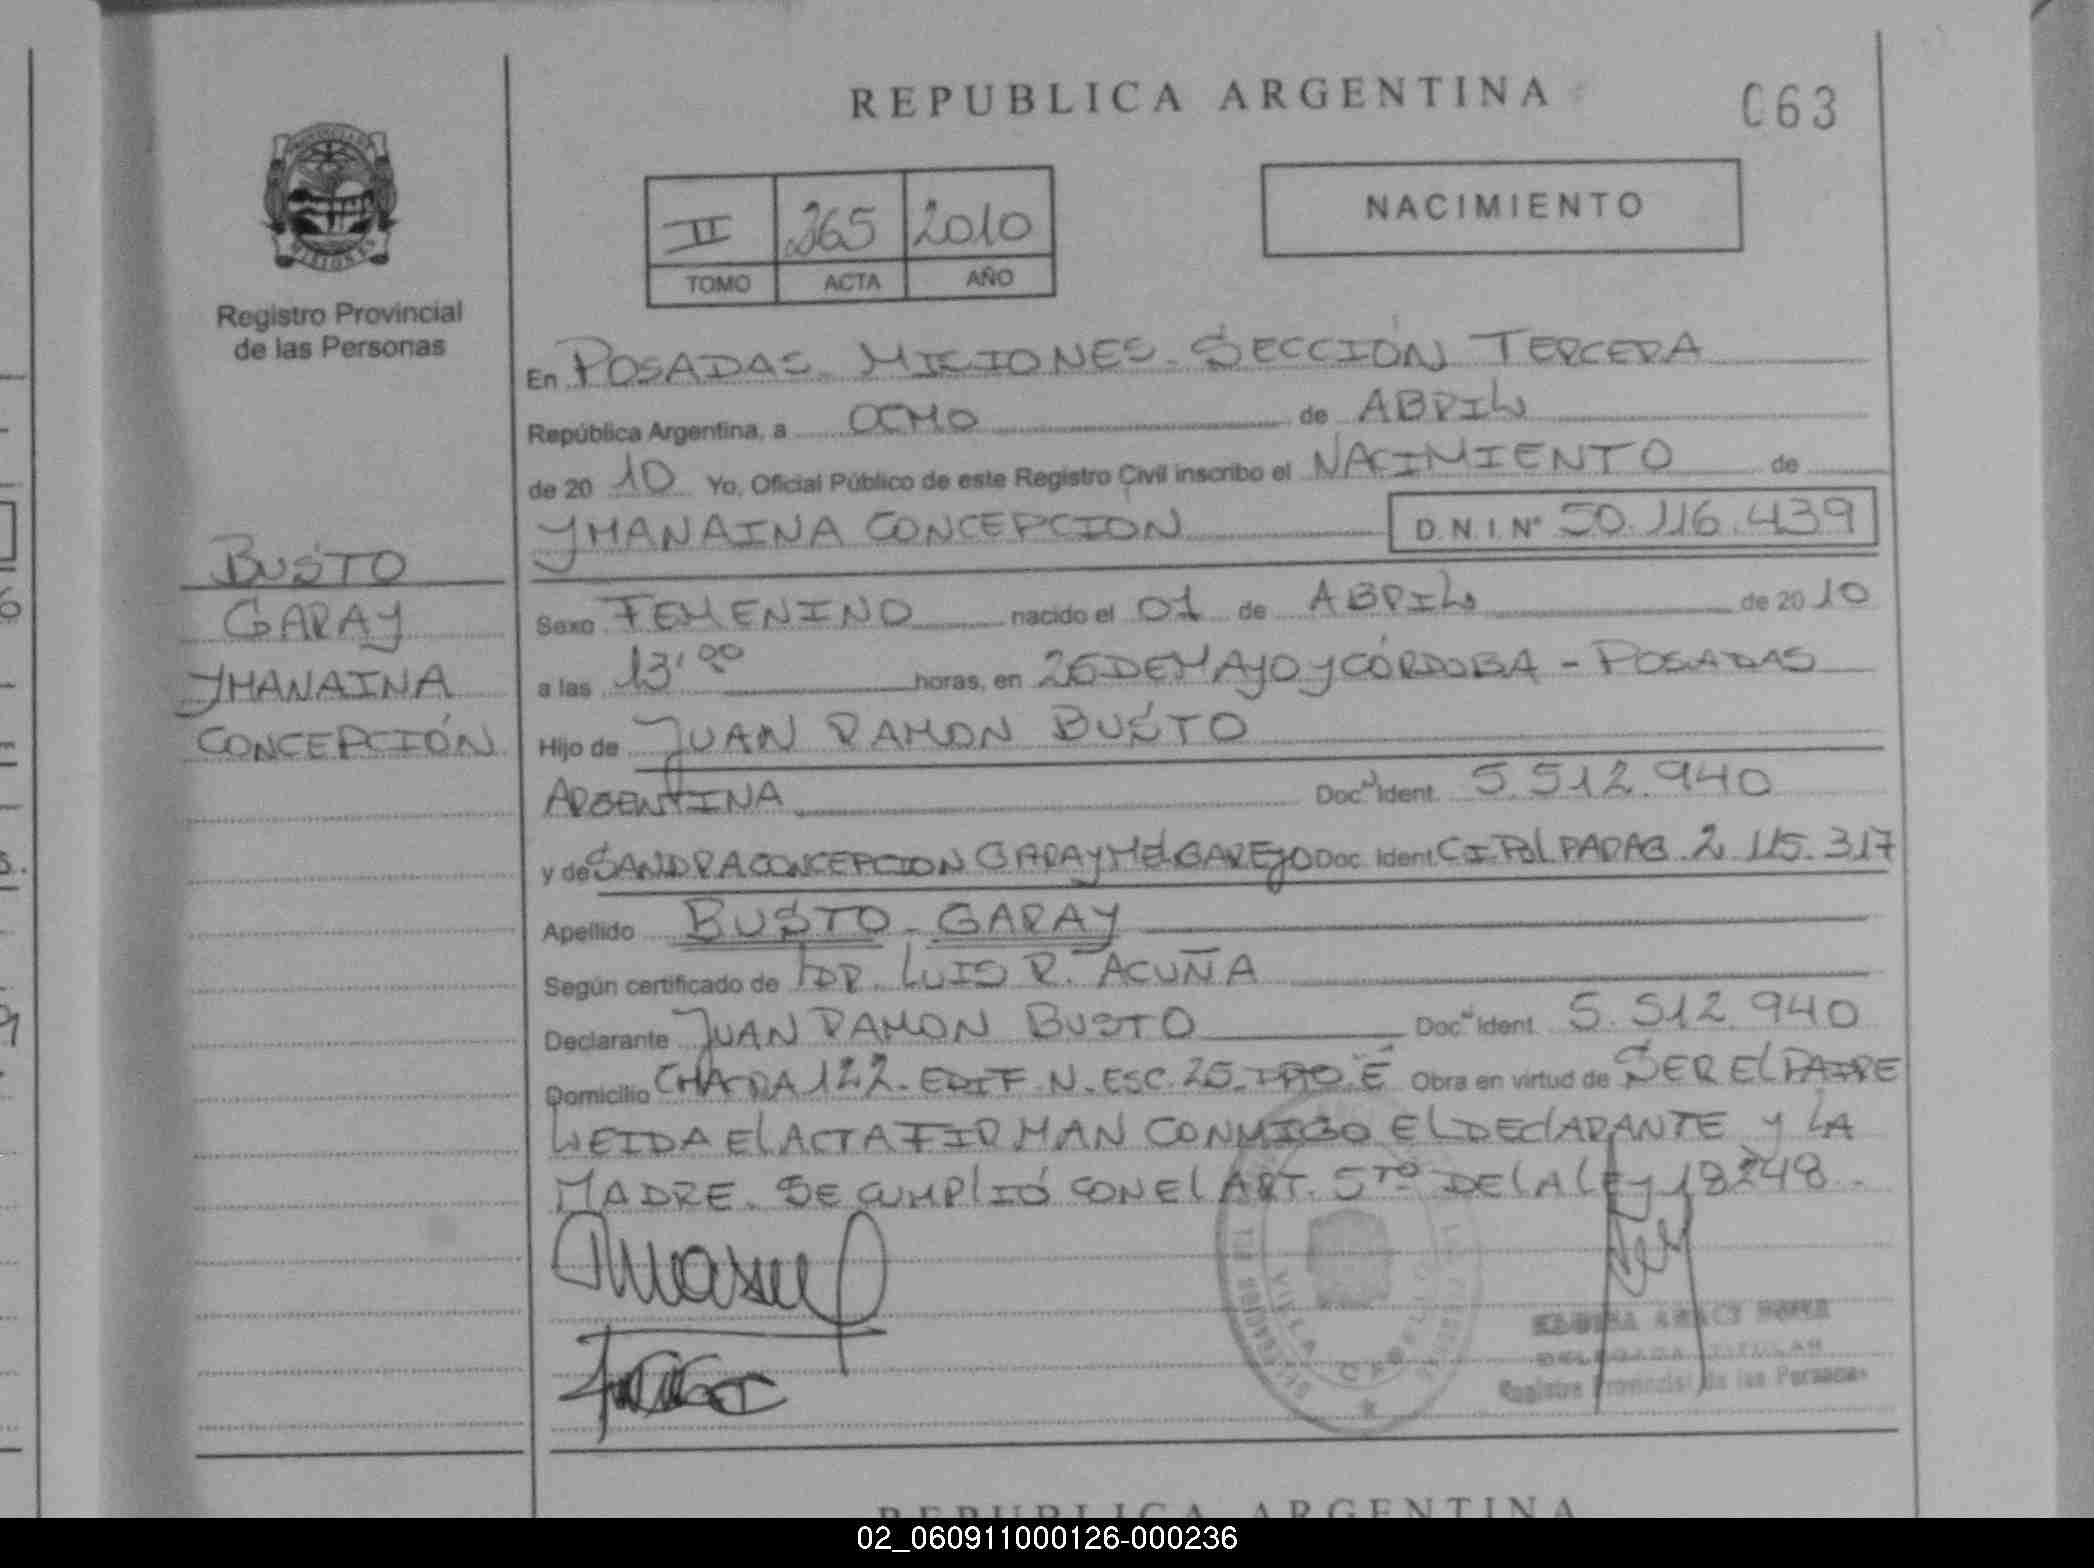 REPUBLICA ARGENTINA
063
II 265 2010
TOMO ACTA AÑO
NACIMIENTO
Registro Provincial
de las Personas
BUSTO
GARAY
YHANAINA
CONCEPCIÓN
En POSADAS. MISIONES. SECCIÓN TERCERA
República Argentina, a OCHO de ABRIL
de 20 10 Yo, Oficial Público de este Registro Civil inscribo el NACIMIENTO de
YHANAINA CONCEPCIÓN D.N.I. N° 50.116.439
Sexo FEMENINO nacido el 01 de ABRIL de 20 10
a las 13,00 horas, en 25 DE MAYO Y CÓRDOBA - POSADAS
Hijo de JUAN RAMON BUSTO
ARGENTINA Doc. Ident. 5.512.940
y de SANDRA CONCEPCION GARAY MELGAREJO Doc. Ident. C.I. Pol PARAG. 2.115.317
Apellido BUSTO - GARAY
Según certificado de DR. LUIS R. ACUÑA
Declarante JUAN RAMON BUSTO Doc. Ident. 5.512.940
Domicilio CHACRA 122. EDIF. N. ESC. 25. DPTO. E Obra en virtud de SER EL PADRE
LEIDA EL ACTA FIRMAN CONMIGO EL DECLARANTE Y LA
MADRE. SE CUMPLIÓ CON EL ART. 5TO DE LA LEY 18248.
VILLA CABELLO
DELEGADA TITULAR
Registro Provincial de las Personas
REPUBLICA ARGENTINA
02_060911000126-000236